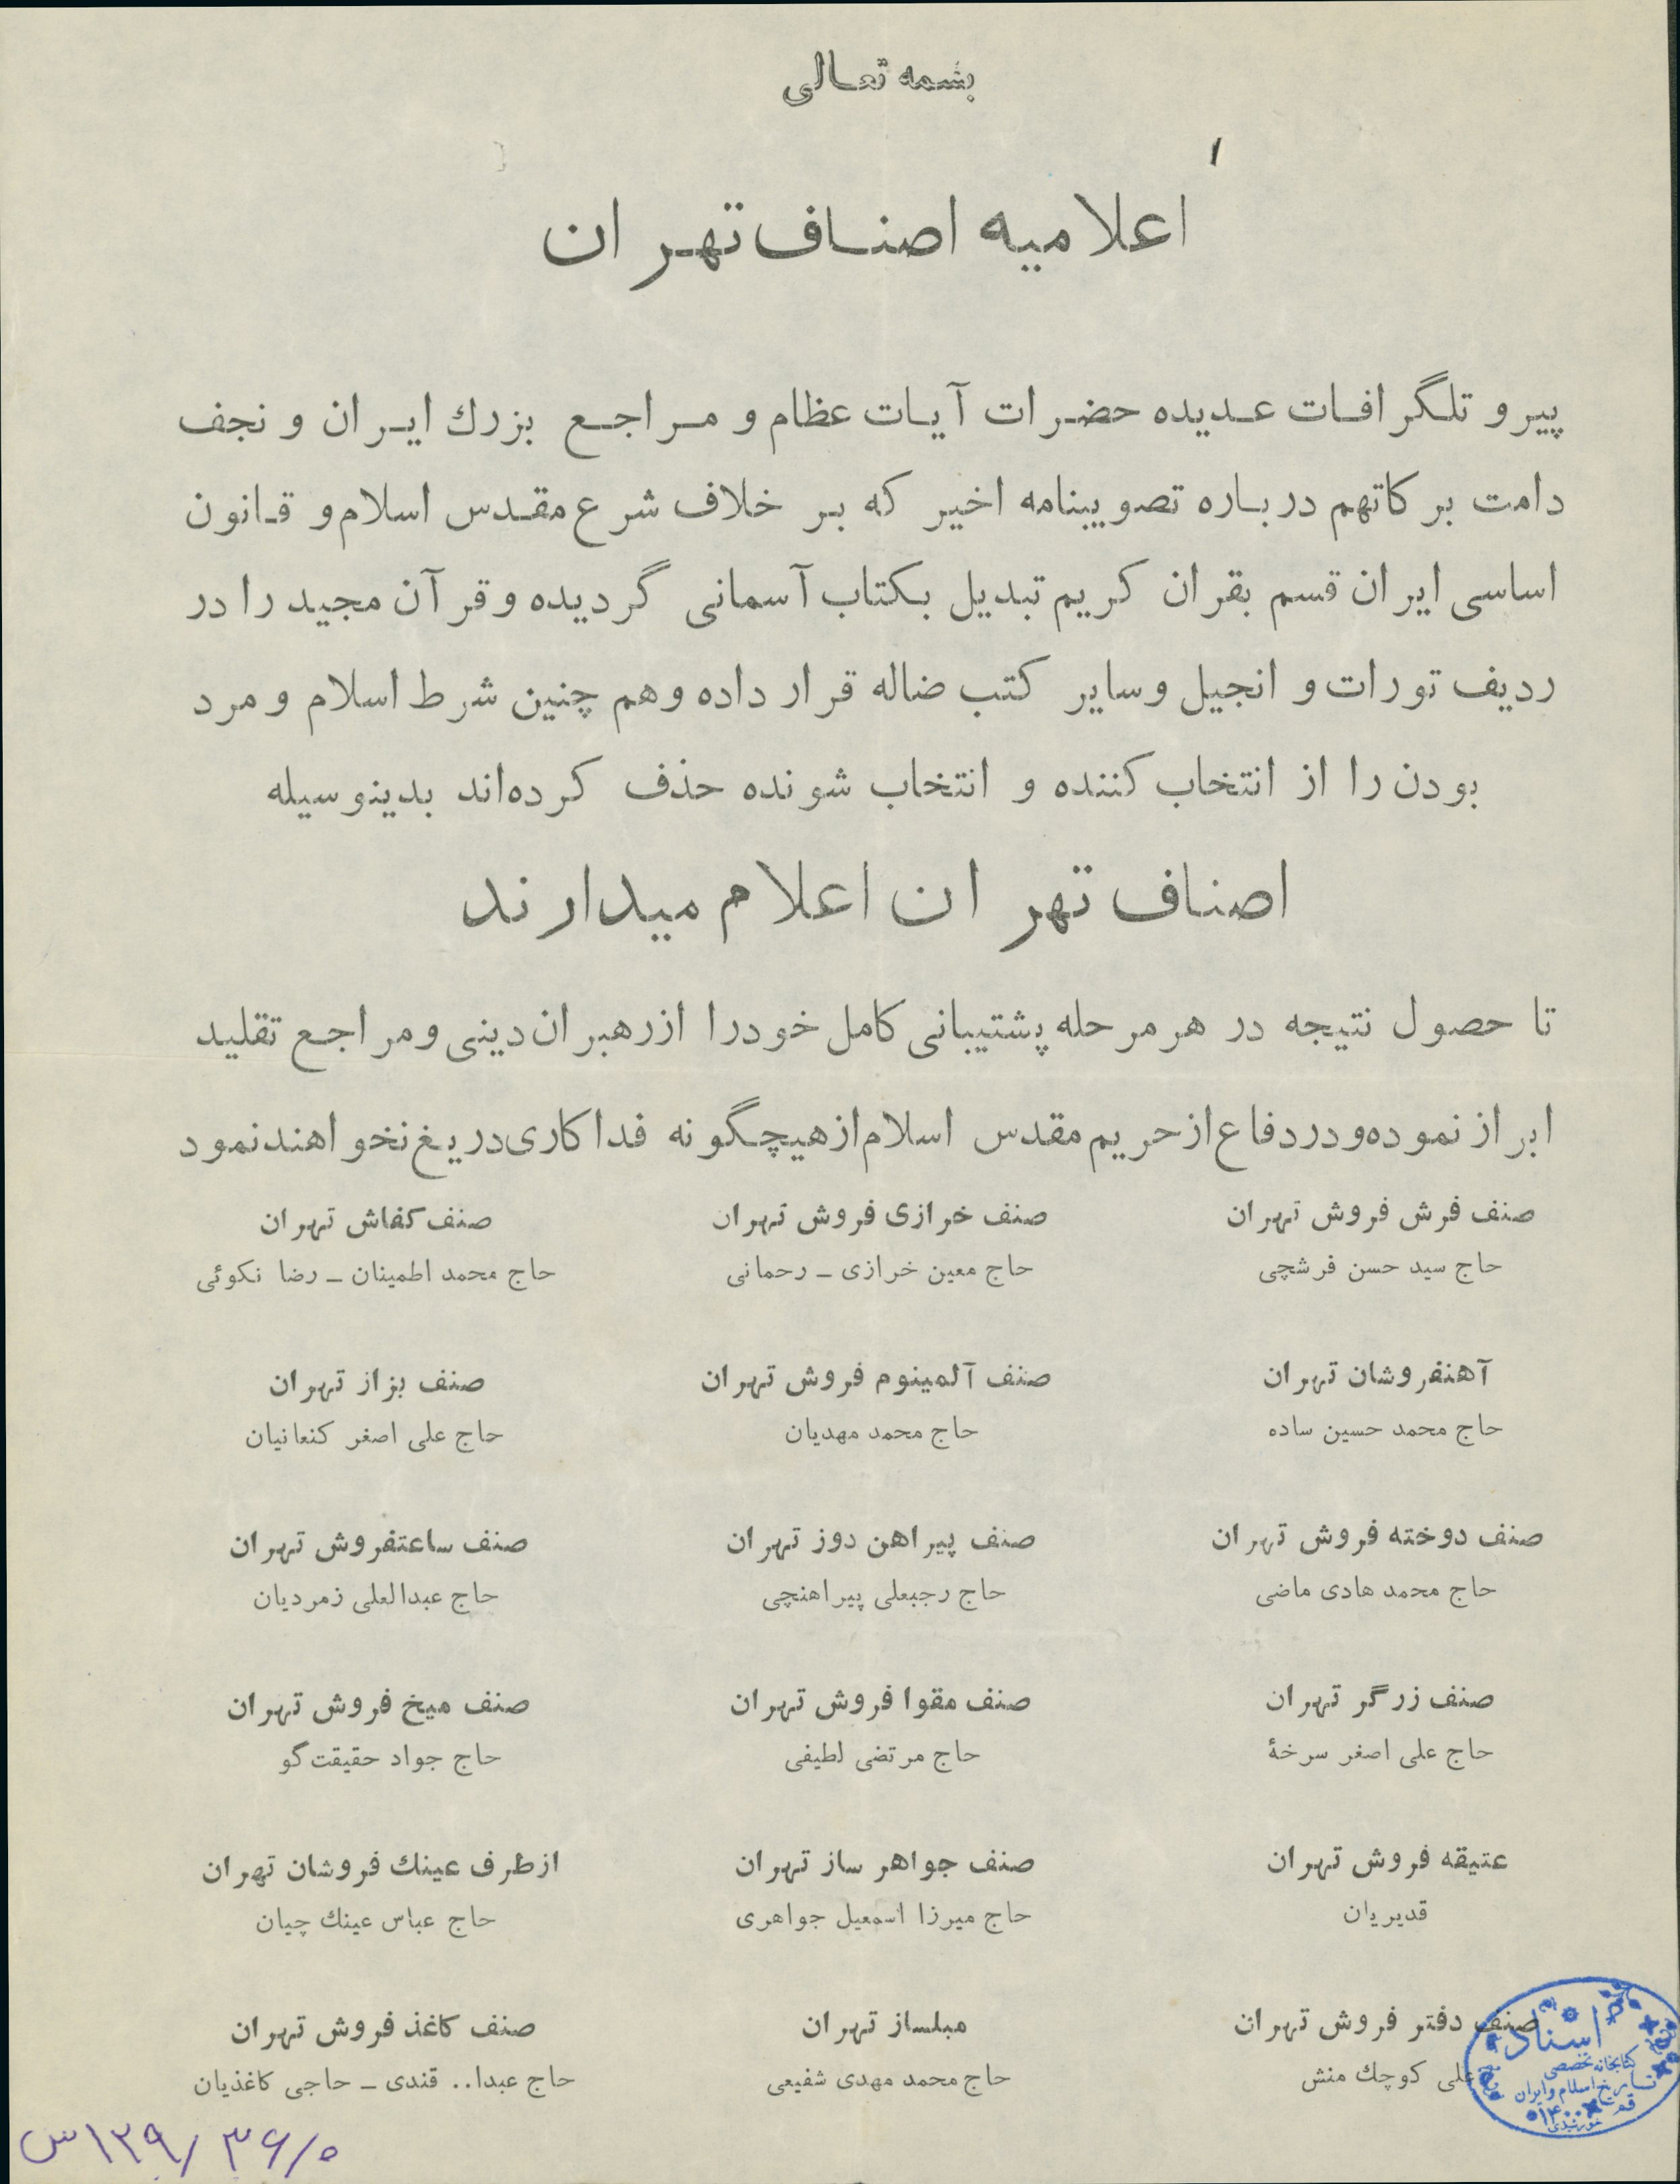 بسمه تعالی
۱
اعلامیه اصناف تهران
پیرو تلگرافات عدیده حضرات آیات عظام و مراجع بزرك ایران و نجف
دامت برکاتهم درباره تصویبنامه اخیر که بر خلاف شرع مقدس اسلام و قانون
اساسی ایران قسم بقران کریم تبدیل بکتاب آسمانی گردیده و قرآن مجید را در
ردیف تورات و انجیل و سایر کتب ضاله قرار داده و هم چنین شرط اسلام و مرد
بودن را از انتخاب کننده و انتخاب شونده حذف کرده‌اند بدینوسیله
اصناف تهران اعلام میدارند
تا حصول نتیجه در هر مرحله پشتیبانی کامل خود را از رهبران دینی و مراجع تقلید
ابراز نموده و در دفاع از حریم مقدس اسلام از هیچگونه فداکاری دریغ نخواهند نمود
صنف فرش فروش تهران صنف خرازی فروش تهران صنف کفاش تهران
حاج سید حسن فرشچی حاج معین خرازی ـ رحمانی حاج محمد اطمینان ـ رضا نکوئی
آهنفروشان تهران صنف آلمینوم فروش تهران صنف بزاز تهران
حاج محمد حسین ساده حاج محمد مهدیان حاج علی اصغر کنعانیان
صنف دوخته فروش تهران صنف پیراهن دوز تهران صنف ساعتفروش تهران
حاج محمد هادی ماضی حاج رجبعلی پیراهنچی حاج عبدالعلی زمردیان
صنف زرگر تهران صنف مقوا فروش تهران صنف میخ فروش تهران
حاج علی اصغر سرخهٔ حاج مرتضی لطیفی حاج جواد حقیقت‌گو
عتیقه فروش تهران صنف جواهر ساز تهران از طرف عینك فروشان تهران
قدیریان حاج میرزا اسمعیل جواهری حاج عباس عینك چیان
صنف دفتر فروش تهران مبلساز تهران صنف کاغذ فروش تهران
علی کوچك منش حاج محمد مهدی شفیعی حاج عبدا.. قندی ـ حاجی کاغذیان
اسناد
کتابخانه تخصصی
تاریخ اسلام و ایران
قم
۱۴۰۰
۱۲۹/۳۶/۵س